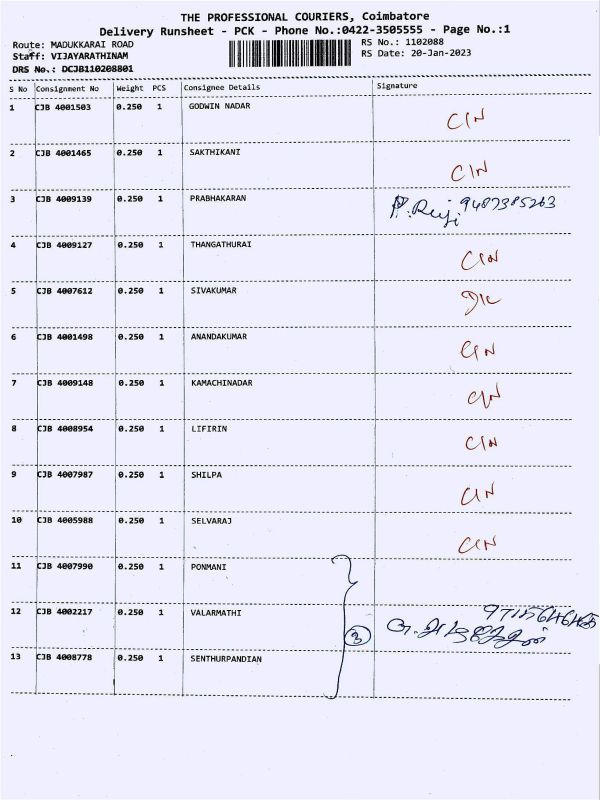 THE PROFESSIONAL COURIERS, Coimbatore
Delivery Runsheet - PCK - Phone No.:0422-3505555 - Page No.:1
Route: MADUKKARAI ROAD RS No.: 1102088
Staff: VIJAYARATHINAM RS Date: 20-Jan-2023
DRS No.: DCJB110208801
S No Consignment No Weight PCS Consignee Details Signature
1 CJB 4001503 0.250 1 GODWIN NADAR CIN
2 CJB 4001465 0.250 1 SAKTHIKANI CIN
3 CJB 4009139 0.250 1 PRABHAKARAN 9487385263
4 CJB 4009127 0.250 1 THANGATHURAI CIN
5 CJB 4007612 0.250 1 SIVAKUMAR
6 CJB 4001498 0.250 1 ANANDAKUMAR CIN
7 CJB 4009148 0.250 1 KAMACHINADAR CIN
8 CJB 4008954 0.250 1 LIFIRIN CIN
9 CJB 4007987 0.250 1 SHILPA CIN
10 CJB 4005988 0.250 1 SELVARAJ CIN
11 CJB 4007990 0.250 1 PONMANI
12 CJB 4002217 0.250 1 VALARMATHI 3
13 CJB 4008778 0.250 1 SENTHURPANDIAN